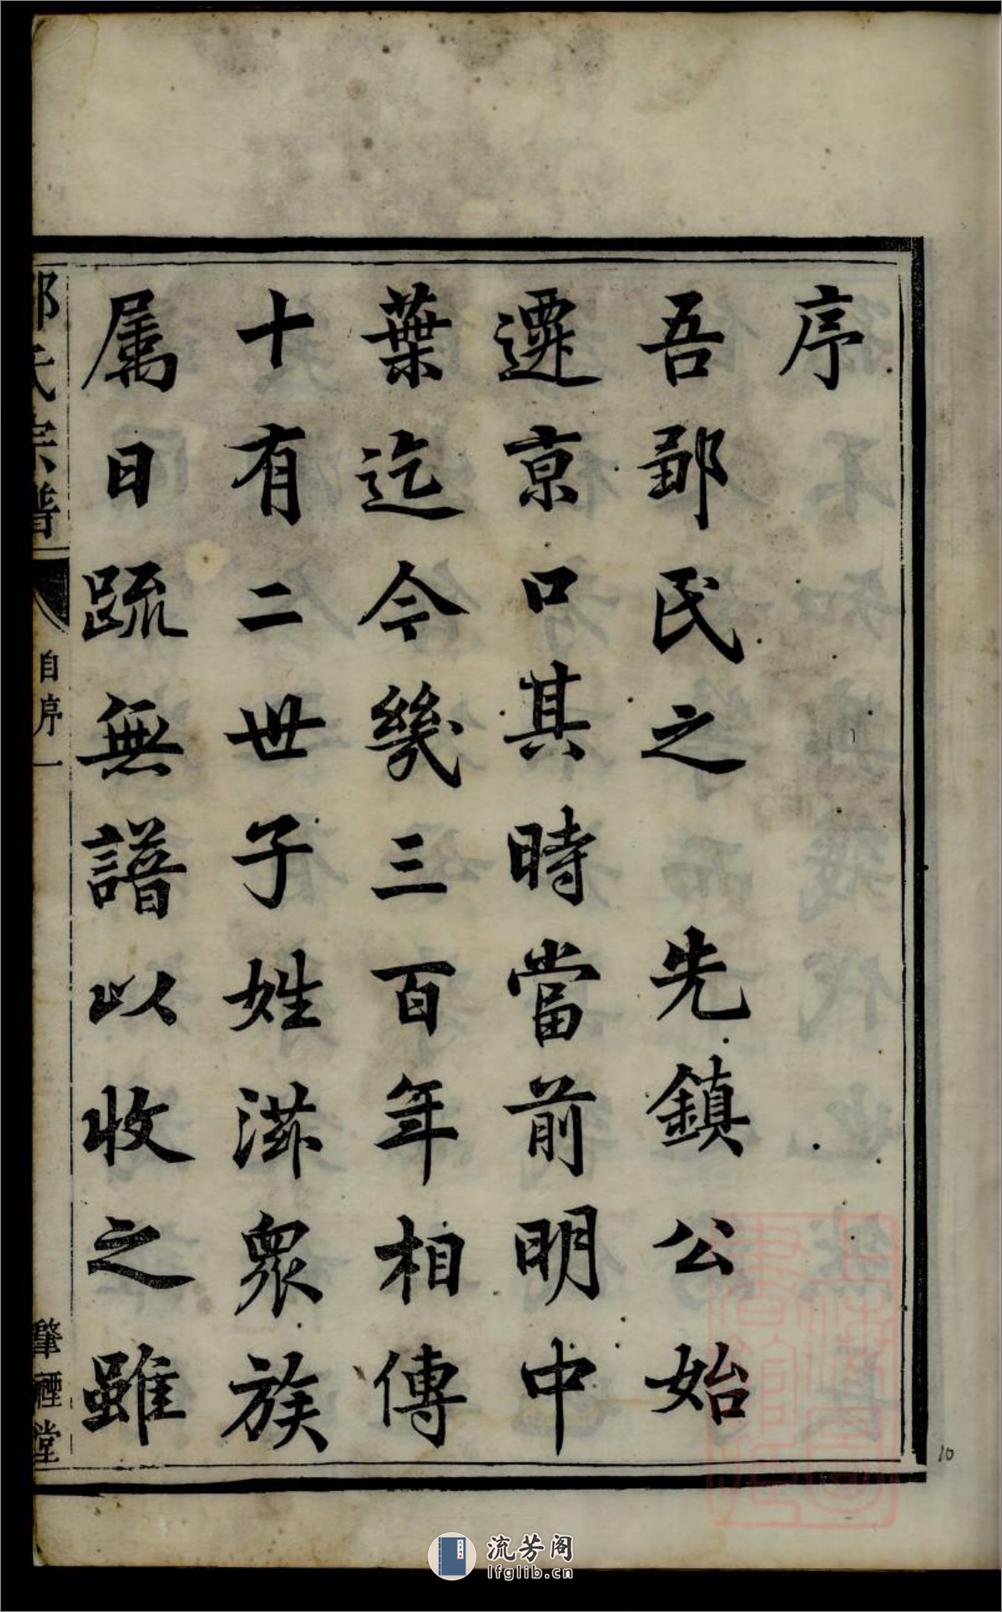 序
吾郢氏之　先鎮公始
遷京口其時當前明中
葉迄今幾三百年相傳
十有二世子姓滋衆族
属日䟽無譜以收之雖
氏宗譜
自序一
肇禋堂
10
流芳阁
lfglib.cn